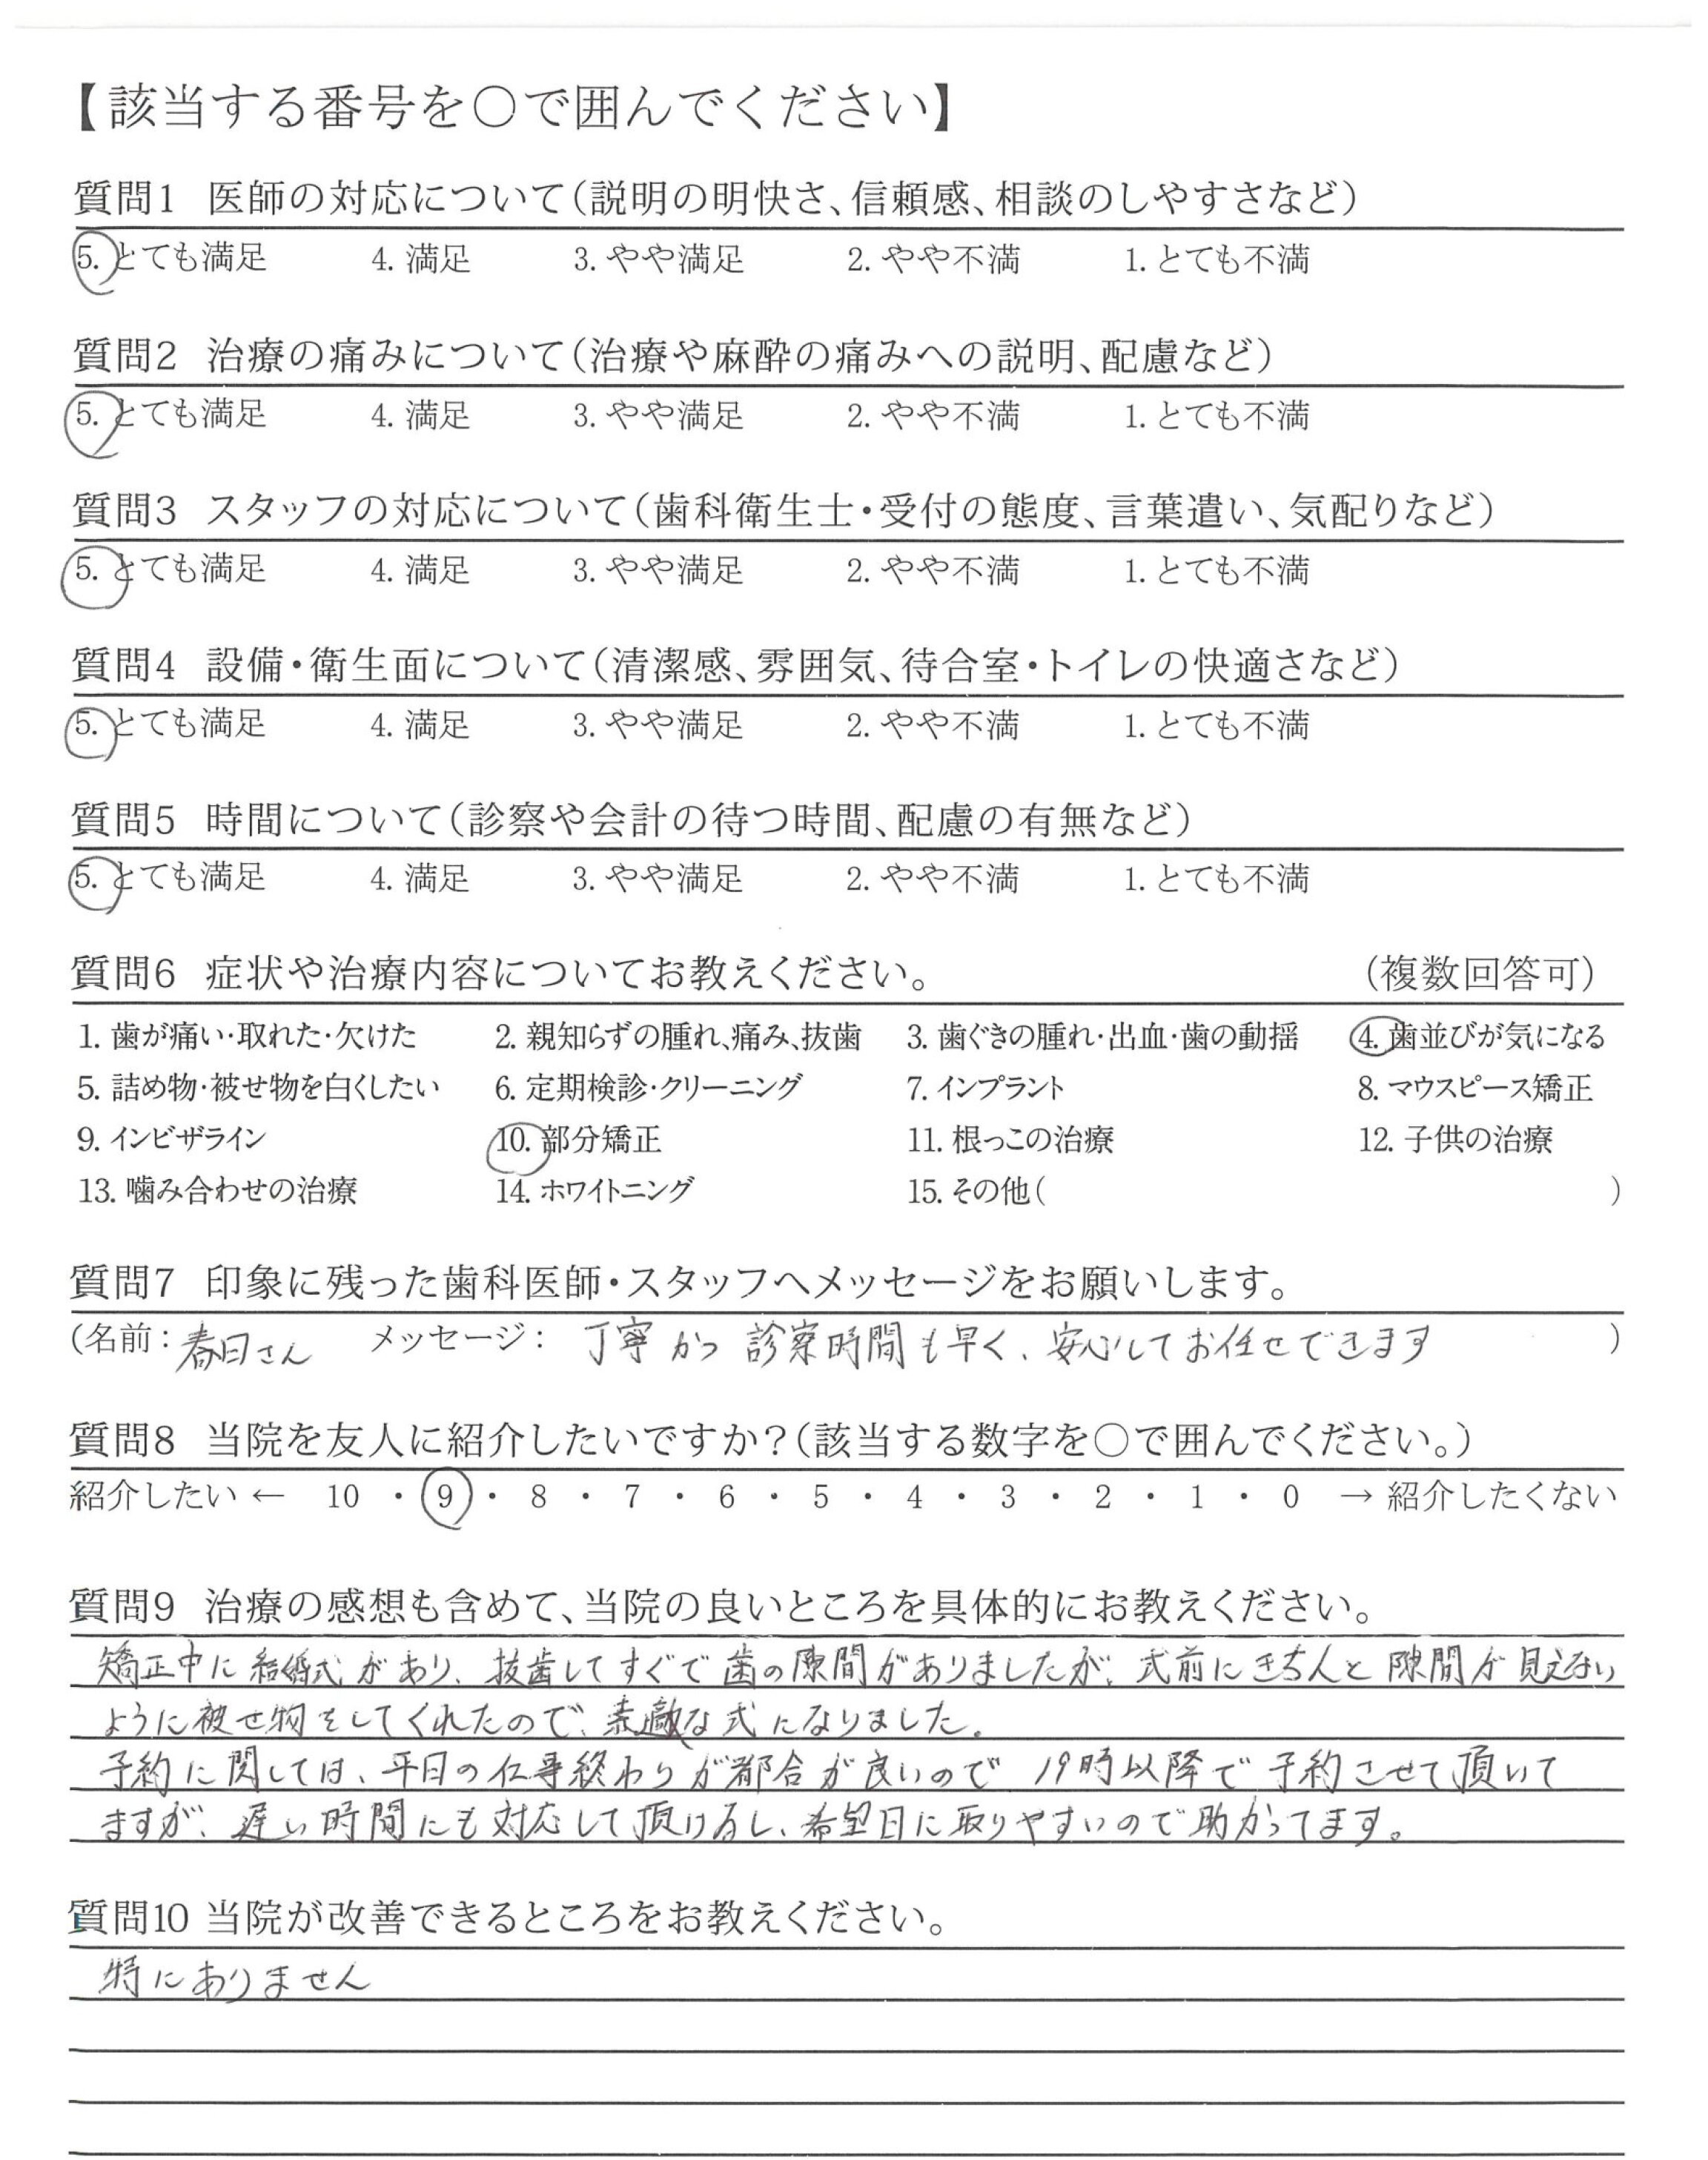 【該当する番号を○で囲んでください】
質問1 医師の対応について(説明の明快さ、信頼感、相談のしやすさなど)
5. とても満足 4. 満足 3. やや満足 2. やや不満 1. とても不満
質問2 治療の痛みについて(治療や麻酔の痛みへの説明、配慮など)
5. とても満足 4. 満足 3. やや満足 2. やや不満 1. とても不満
質問3 スタッフの対応について(歯科衛生士・受付の態度、言葉遣い、気配りなど)
5. とても満足 4. 満足 3. やや満足 2. やや不満 1. とても不満
質問4 設備・衛生面について(清潔感、雰囲気、待合室・トイレの快適さなど)
5. とても満足 4. 満足 3. やや満足 2. やや不満 1. とても不満
質問5 時間について(診察や会計の待つ時間、配慮の有無など)
5. とても満足 4. 満足 3. やや満足 2. やや不満 1. とても不満
質問6 症状や治療内容についてお教えください。 (複数回答可)
1. 歯が痛い・取れた・欠けた 2. 親知らずの腫れ、痛み、抜歯 3. 歯ぐきの腫れ・出血・歯の動揺 4. 歯並びが気になる
5. 詰め物・被せ物を白くしたい 6. 定期検診・クリーニング 7. インプラント 8. マウスピース矯正
9. インビザライン 10. 部分矯正 11. 根っこの治療 12. 子供の治療
13. 噛み合わせの治療 14. ホワイトニング 15. その他( )
質問7 印象に残った歯科医師・スタッフへメッセージをお願いします。
(名前：春日さん メッセージ： 丁寧かつ診察時間も早く、安心してお任せできます )
質問8 当院を友人に紹介したいですか？(該当する数字を○で囲んでください。)
紹介したい ← 10 ・ 9 ・ 8 ・ 7 ・ 6 ・ 5 ・ 4 ・ 3 ・ 2 ・ 1 ・ 0 → 紹介したくない
質問9 治療の感想も含めて、当院の良いところを具体的にお教えください。
矯正中に結婚式があり、抜歯してすぐで歯の隙間がありましたが、式前にきちんと隙間が見えない
ように被せ物をしてくれたので、素敵な式になりました。
予約に関しては、平日の仕事終わりが都合が良いので 19時以降で予約させて頂いて
ますが、遅い時間にも対応して頂けるし、希望日に取りやすいので助かってます。
質問10 当院が改善できるところをお教えください。
特にありません